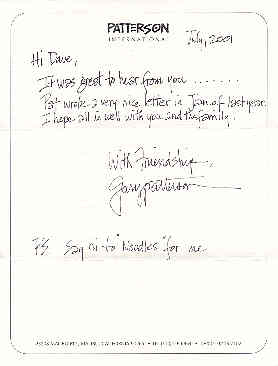 PATTERSON
INTERNATIONAL
July, 2001
Hi Dave,
It was great to hear from you ........
Pat wrote a very nice letter in Jan of last year.
I hope all is well with you and the family.
With Friendship,
Gary Patterson
PS Say hi to "Noodles" for me